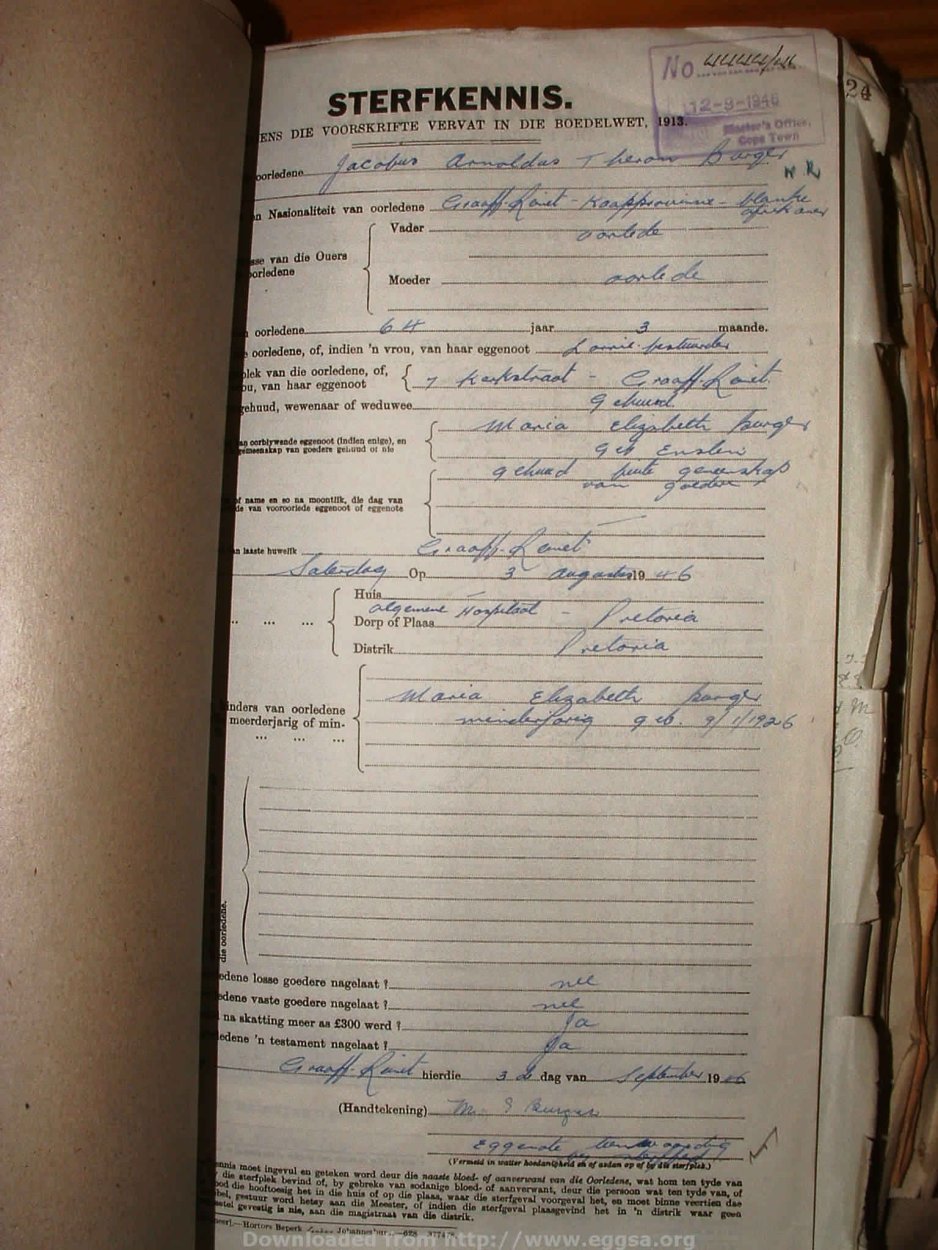 No 4444/46
24
12-9-1946
Master's Office,
Cape Town
STERFKENNIS.
ENS DIE VOORSKRIFTE VERVAT IN DIE BOEDELWET, 1913.
oorledene Jacobus Arnoldus Theron Burger
n Nasionaliteit van oorledene Graaff-Reinet - Kaapprovinsie - blanke
afrikaner
Vader oorlede
sse van die Ouers
oorledene
Moeder oorlede
oorledene 64 jaar 3 maande.
oorledene, of, indien 'n vrou, van haar eggenoot Lorrie-bestuurder
plek van die oorledene, of,
ou, van haar eggenoot 7 Kerkstraat - Graaff-Reinet
gehuud, wewenaar of weduwee gehuud
Maria Elizabeth Burger
an oorblywende eggenoot (indien enige), en
gemeenskap van goedere gehuud of nie
geb Enslin
gehuud buite gemeenskap
van goedere
of name en so na moontlik, die dag van
de van vooroorlede eggenoot of eggenote
an laaste huwelik Graaff-Reinet
Saterdag Op 3 Augustus 1946
Huis
algemene Hospitaal - Pretoria
Dorp of Plaas
Distrik Pretoria
Maria Elizabeth Burger
inders van oorledene
meerderjarig of min-
minderjarig geb. 9/1/1926
die oorledene.
edene losse goedere nagelaat ? nee
edene vaste goedere nagelaat ? nee
na skatting meer as £300 werd ? Ja
ledene 'n testament nagelaat ? Ja
Graaff-Reinet hierdie 3de dag van September 1946
(Handtekening) M. E Burger
Eggenote teenwoordig
(Vermeld in watter hoedanigheid en of aldan op of by die sterfplek.)
ennis moet ingevul en geteken word deur die naaste bloed- of aanverwant van die Oorledene, wat hom ten tyde van
die sterfplek bevind of, by gebreke van sodanige bloed- of aanverwant, deur die persoon wat ten tyde van, of
ood die hooftoesig het in die huis of op die plaas, waar die sterfgeval voorgeval het, en moet binne veertien dae
bel, gestuur word hetsy aan die Meester, of indien die sterfgeval plaasgevind het in 'n distrik waar geen
setel gevestig is nie, aan die magistraat van die distrik.
Hortors Beperk Johannesburg
Downloaded from http://www.eggsa.org